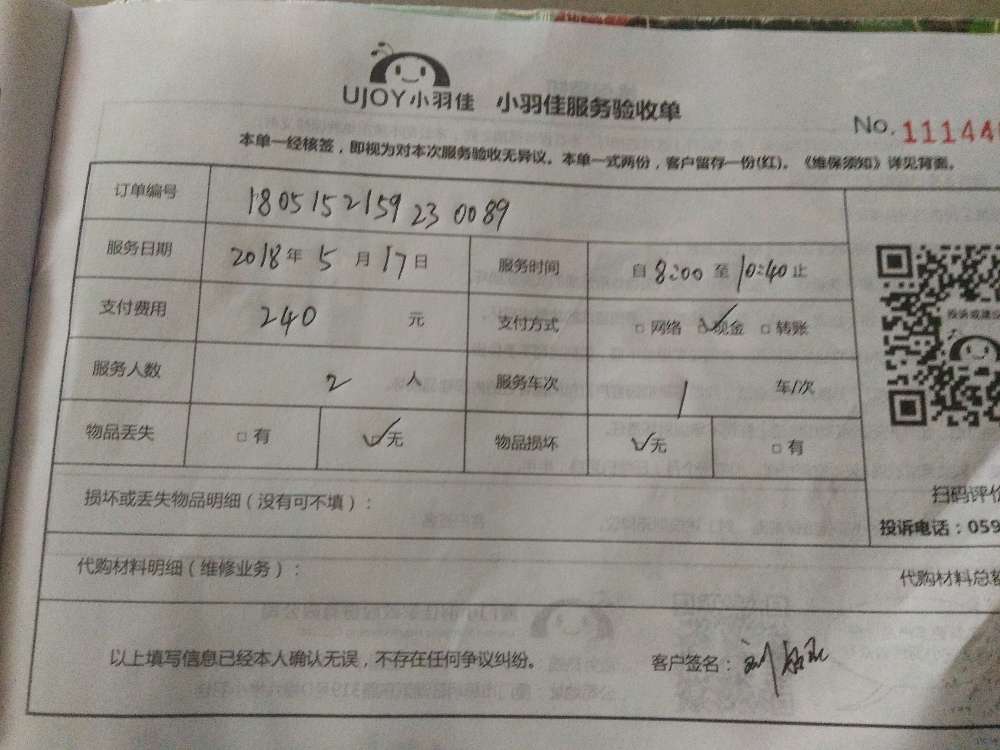 UJOY小羽佳 小羽佳服务验收单
No. 11144
本单一经核签，即视为对本次服务验收无异议。本单一式两份，客户留存一份(红)。《维保须知》详见背面。
订单编号 180515215923 0089
服务日期 2018年 5 月 17 日 服务时间 自 8:00 至 10:40 止
支付费用 240 元 支付方式 □ 网络 ☑ 现金 □ 转账
投诉或建议
服务人数 2 人 服务车次 1 车/次
物品丢失 □ 有 ☑ 无 物品损坏 ☑ 无 □ 有
损坏或丢失物品明细（没有可不填）：
扫码评价
投诉电话：059
代购材料明细（维修业务）：
代购材料总
以上填写信息已经本人确认无误，不存在任何争议纠纷。 客户签名：刘